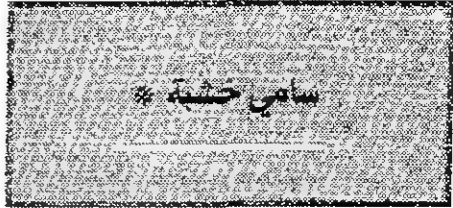 سامي خشبة *